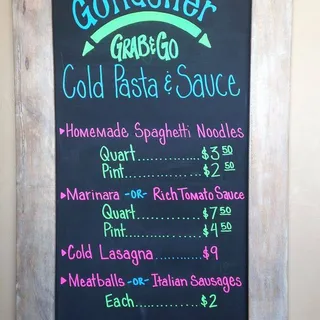 Gondolier
GRAB & GO
Cold Pasta & Sauce
▸Homemade Spaghetti Noodles
Quart..............$3 50
Pint...............$2 50
▸Marinara -OR- Rich Tomato Sauce
Quart..............$7 50
Pint...............$4 50
▸Cold Lasagna..........$9
▸Meatballs -OR- Italian Sausages
Each..............$2